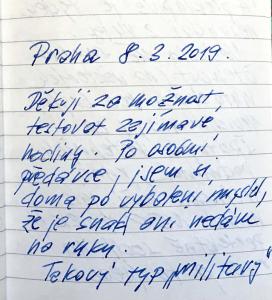 Praha 8.3.2019.
Děkuji za možnost,
testovat zajímavé
hodiny. Po osobní
předávce, jsem si
doma po vybalení myslel,
že je snad ani nedám
na ruku.
Takový typ „military"